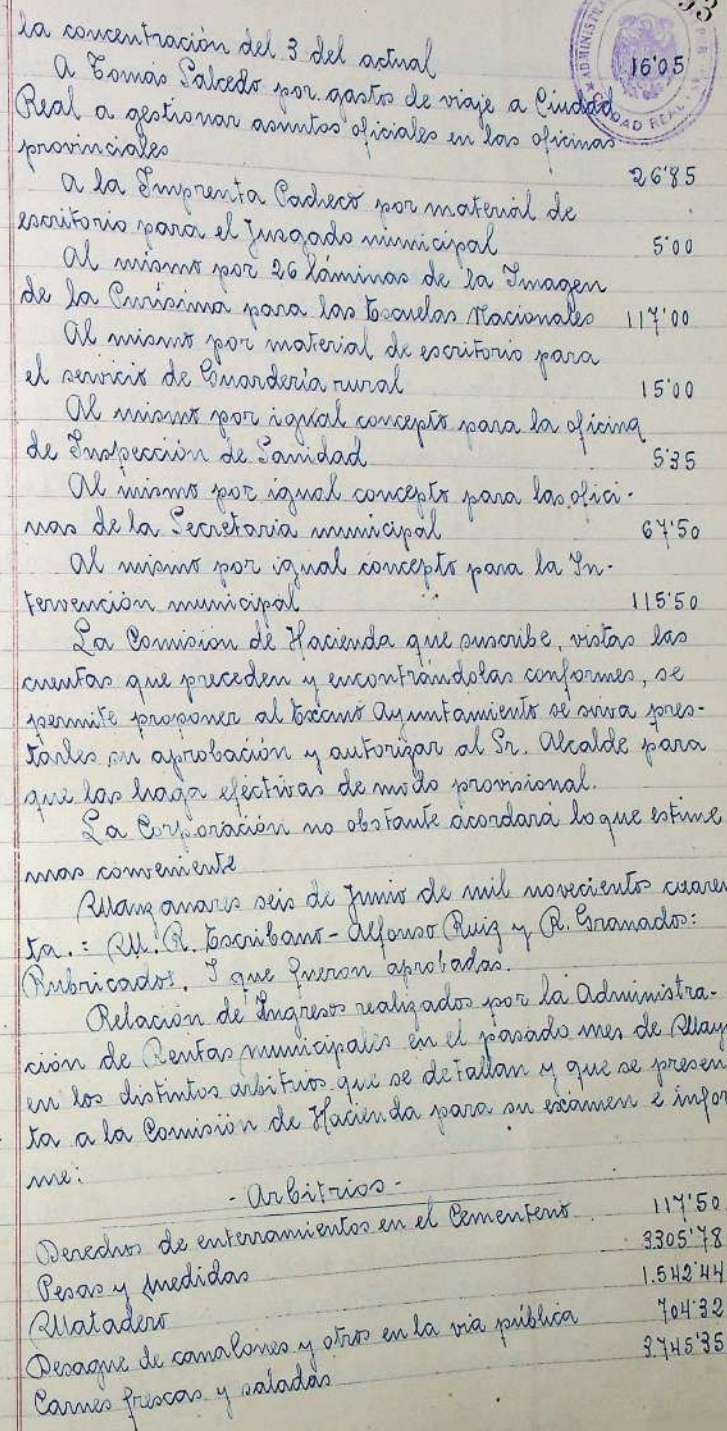 93
ADMINISTRA
CIUDAD REAL
la concentración del 3 del actual 16'05
A Tomás Salcedo por gastos de viaje a Ciudad
Real a gestionar asuntos oficiales en las oficinas
provinciales 26'85
A la Imprenta Pacheco por material de
escritorio para el Juzgado municipal 5'00
Al mismo por 26 láminas de la Imagen
de la Purísima para las Escuelas Nacionales 117'00
Al mismo por material de escritorio para
el servicio de Guardería rural 15'00
Al mismo por igual concepto para la oficina
de Inspección de Sanidad 5'35
Al mismo por igual concepto para las ofici-
nas de la Secretaria municipal 67'50
Al mismo por igual concepto para la In-
tervención municipal 115'50
La Comisión de Hacienda que suscribe, vistas las
cuentas que preceden y encontrándolas conformes, se
permite proponer al Excmo Ayuntamiento se sirva pres-
tarles su aprobación y autorizar al Sr. Alcalde para
que las haga efectivas de modo provisional.
La Corporación no obstante acordará lo que estime
mas conveniente
Manzanares seis de Junio de mil novecientos cuaren
ta.= M. R. Escribano - Alfonso Ruiz y R. Granados:
Rubricados. Y que fueron aprobadas.
Relación de Ingresos realizados por la Administra-
ción de Rentas municipales en el pasado mes de Mayo
en los distintos arbitrios que se detallan y que se presen
ta a la Comisión de Hacienda para su exámen e infor
me:
- Arbitrios -
Derechos de enterramientos en el Cementerio 117'50
Pesas y medidas 3305'78
Matadero 1.542'44
Desagüe de canalones y otros en la via pública 704'32
Carnes frescas y saladas 3.745'35